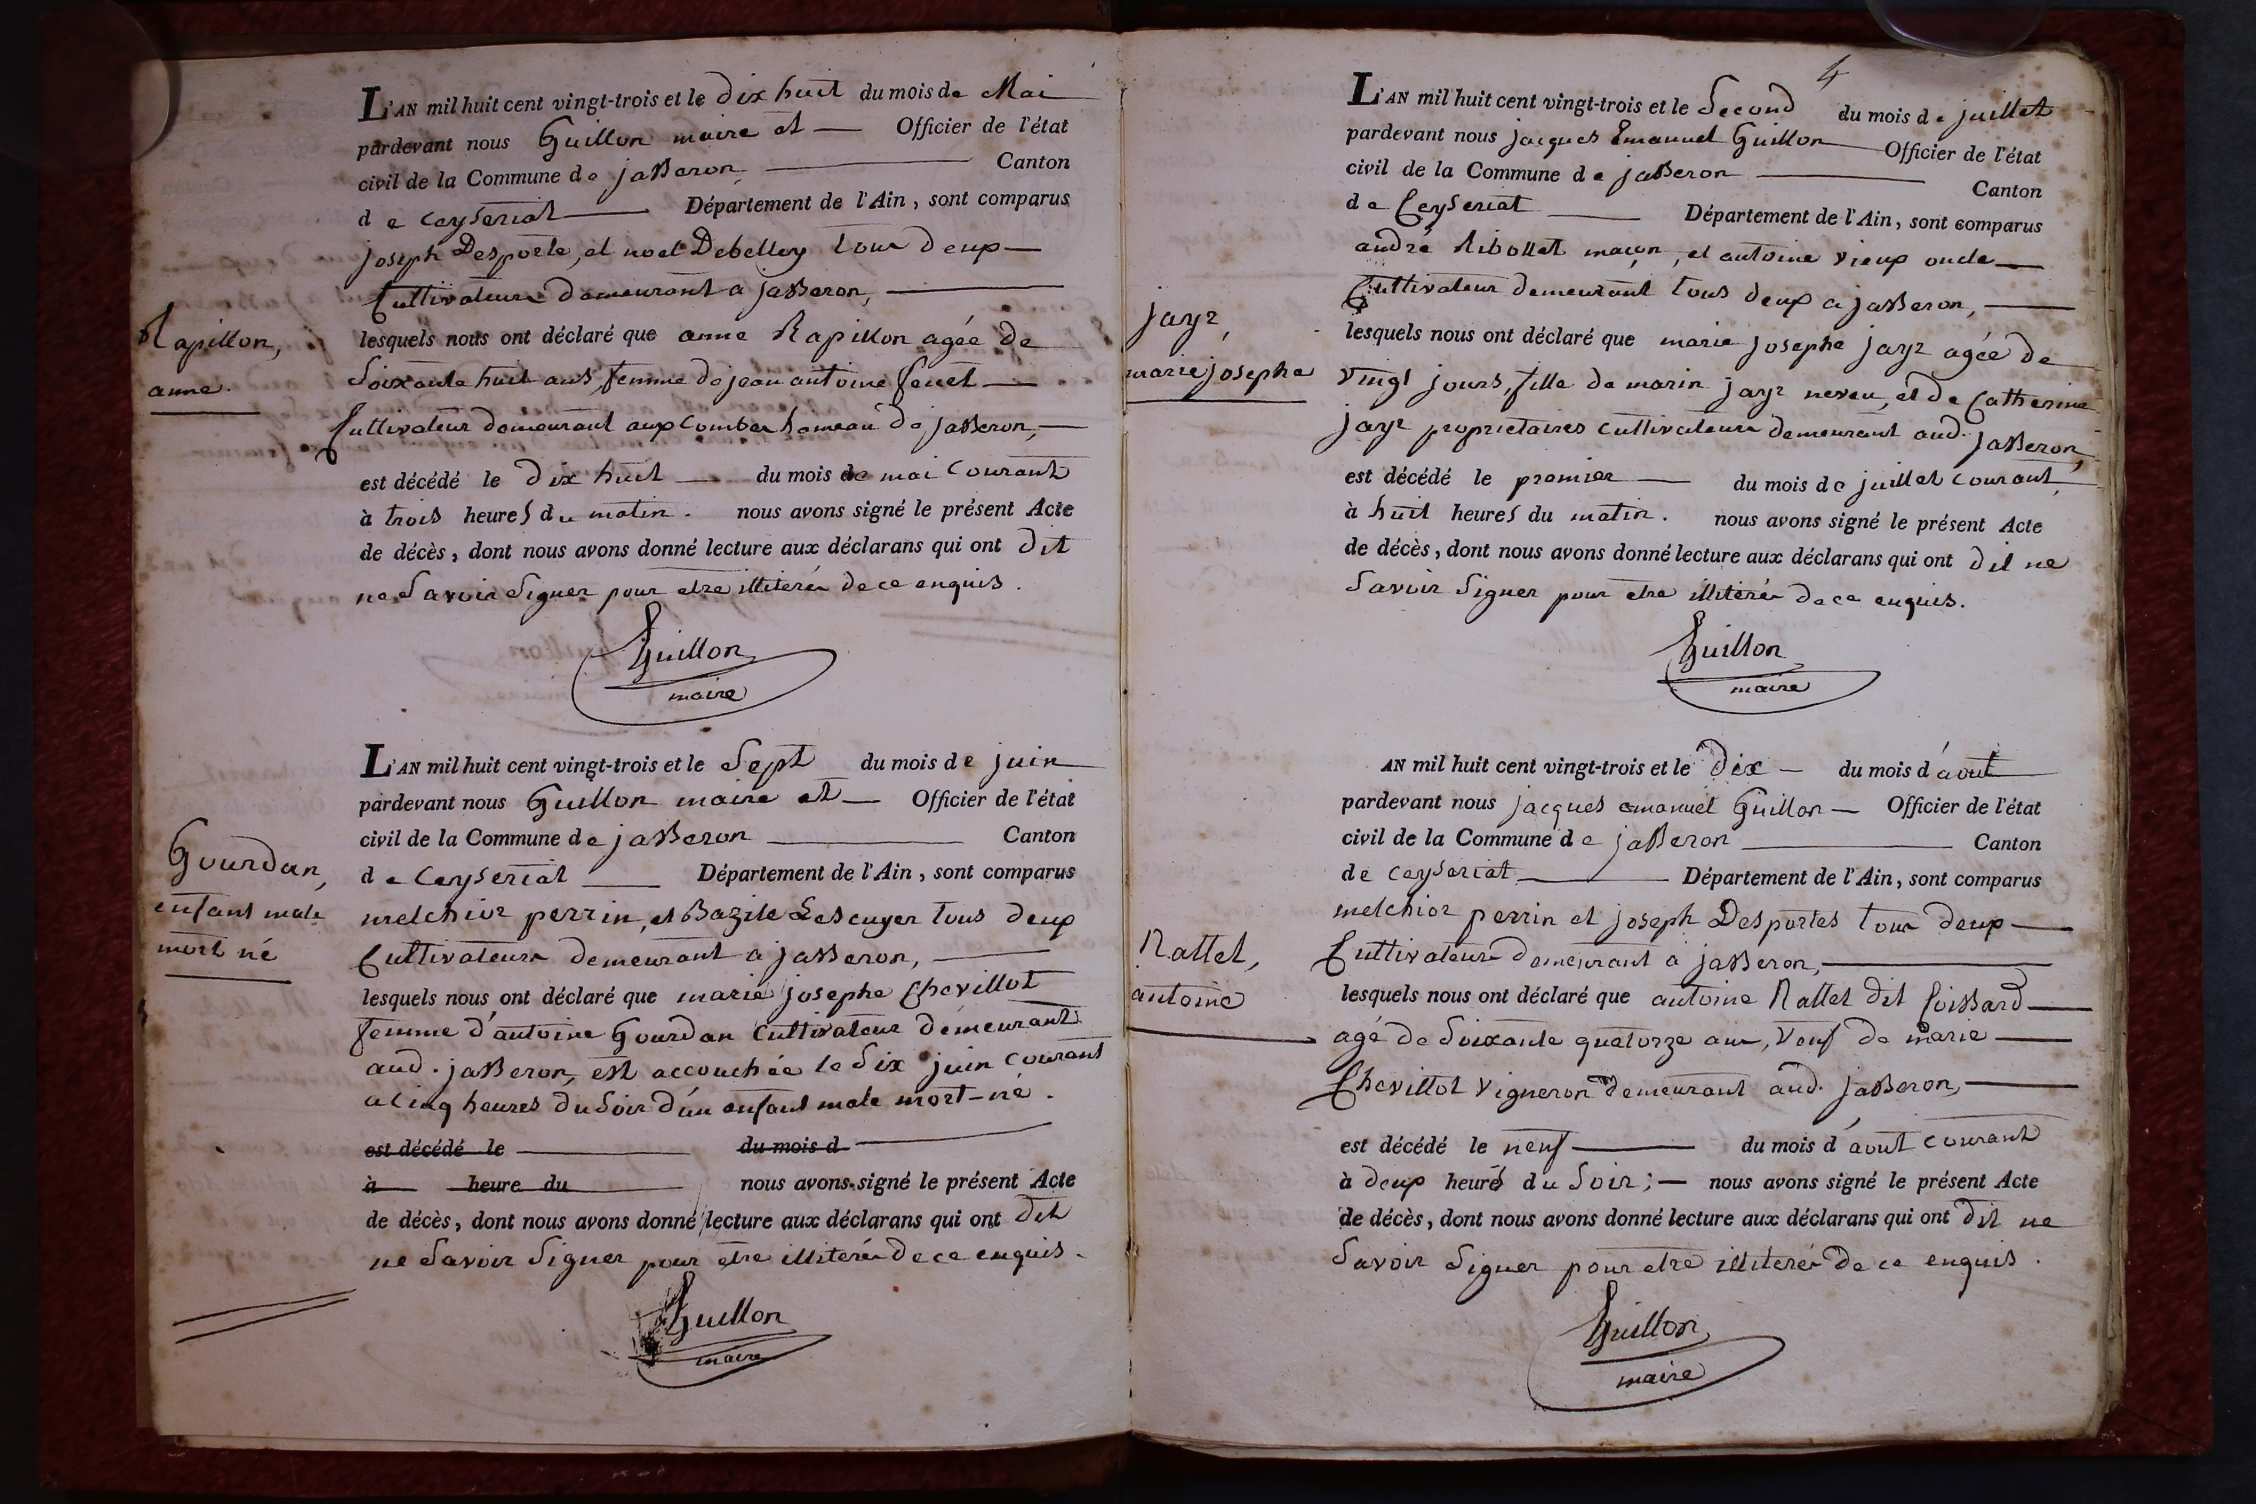 L'AN mil huit cent vingt-trois et le dix huit du mois de Mai
pardevant nous Guillon maire et — Officier de l'état
civil de la Commune de jasseron — Canton
de Ceyseriat — Département de l'Ain, sont comparus
joseph Desporte, et noel Debelloy tous deux —
Cultivateurs demeurant a jasseron, —
Rapillon,
anne.
lesquels nous ont déclaré que anne Rapillon agée de
Soixante huit ans, femme de jean antoine —
Cultivateur demeurant aux Combes hameau de jasseron, —
est décédé le dix huit — du mois de mai Courant
à trois heures du matin. nous avons signé le présent Acte
de décès, dont nous avons donné lecture aux déclarans qui ont dit
ne Savoir Signer pour etre illiterés de ce enquis.
Guillon
maire
L'AN mil huit cent vingt-trois et le Sept du mois de juin
pardevant nous Guillon maire et — Officier de l'état
civil de la Commune de jasseron — Canton
de Ceyseriat — Département de l'Ain, sont comparus
Gourdan,
enfant male
mort né
melchior perrin, et Bazile Lescuyer tous deux
Cultivateurs demeurant a jasseron, —
lesquels nous ont déclaré que marie josephe Chevillot
femme d'antoine Gourdan Cultivateur demeurant
aud. jasseron, est accouchée le Six juin Courant
a Cinq heures du Soir d'un enfant male mort-né.
est décédé le — du mois d —
à — heure du — nous avons signé le présent Acte
de décès, dont nous avons donné lecture aux déclarans qui ont dit
ne Savoir Signer pour etre illiterés de ce enquis.
Guillon
maire
4
L'AN mil huit cent vingt-trois et le Second du mois de juillet
pardevant nous jacques Emanuel Guillon — Officier de l'état
civil de la Commune de jasseron — Canton
de Ceyseriat — Département de l'Ain, sont comparus
andré Ribollet maçon, et antoine vieux oncle —
Cultivateur demeurant tous deux a jasseron, —
jayr,
marie josephe
lesquels nous ont déclaré que marie josephe jayr agée de
vingt jours, fille de marin jayr neveu, et de Catherine
jayr proprietaires cultivateurs demeurant aud. jasseron,
est décédé le premier — du mois de juillet Courant,
à huit heures du matin. nous avons signé le présent Acte
de décès, dont nous avons donné lecture aux déclarans qui ont dit ne
Savoir Signer pour etre illiterés de ce enquis.
Guillon
maire
AN mil huit cent vingt-trois et le Dix — du mois d'aout
pardevant nous jacques emanuel Guillon — Officier de l'état
civil de la Commune de jasseron — Canton
de Ceyseriat — Département de l'Ain, sont comparus
melchior perrin et joseph Desportes tous deux —
Cultivateurs demeurant à jasseron, —
Nallet,
antoine
lesquels nous ont déclaré que antoine Nallet dit Coissard —
agé de Soixante quatorze ans, veuf de marie —
Chevillot vigneron demeurant aud. jasseron, —
est décédé le neuf — du mois d'aout Courant
à deux heures du Soir; — nous avons signé le présent Acte
de décès, dont nous avons donné lecture aux déclarans qui ont dit ne
Savoir Signer pour etre illiterés de ce enquis.
Guillon
maire